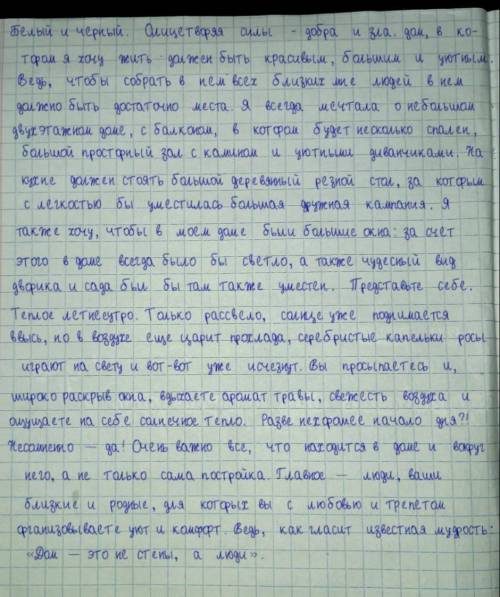 Белый и черный. Олицетворяя силы - добра и зла. дом, в ко-
тором я хочу жить должен быть красивым, большим и уютным.
Ведь, чтобы собрать в нем всех близких мне людей в нем
должно быть достаточно места. Я всегда мечтала о небольшом
двухэтажном доме, с балконом, в котором будет несколько спален,
большой просторный зал с камином и уютными диванчиками. На
кухне должен стоять большой деревянный резной стол, за которым
с легкостью бы уместилась большая дружная кампания. Я
также хочу, чтобы в моем доме были большие окна: за счет
этого в доме всегда было бы светло, а также чудесный вид
дворика и сада был бы там также уместен. Представьте себе.
Теплое летнее утро. Только рассвело, солнце уже поднимается
ввысь, но в воздухе еще царит прохлада, серебристые капельки росы
играют на свету и вот-вот уже исчезнут. Вы просыпаетесь и,
широко раскрыв окна, вдыхаете аромат травы, свежесть воздуха и
ощущаете на себе солнечное тепло. Разве не хорошее начало дня?!
Несомненно — да! Очень важно все, что находится в доме и вокруг
него, а не только сама постройка. Главное — люди, ваши
близкие и родные, для которых вы с любовью и трепетом
организовываете уют и комфорт. Ведь, как гласит известная мудрость:
«Дом — это не стены, а люди».